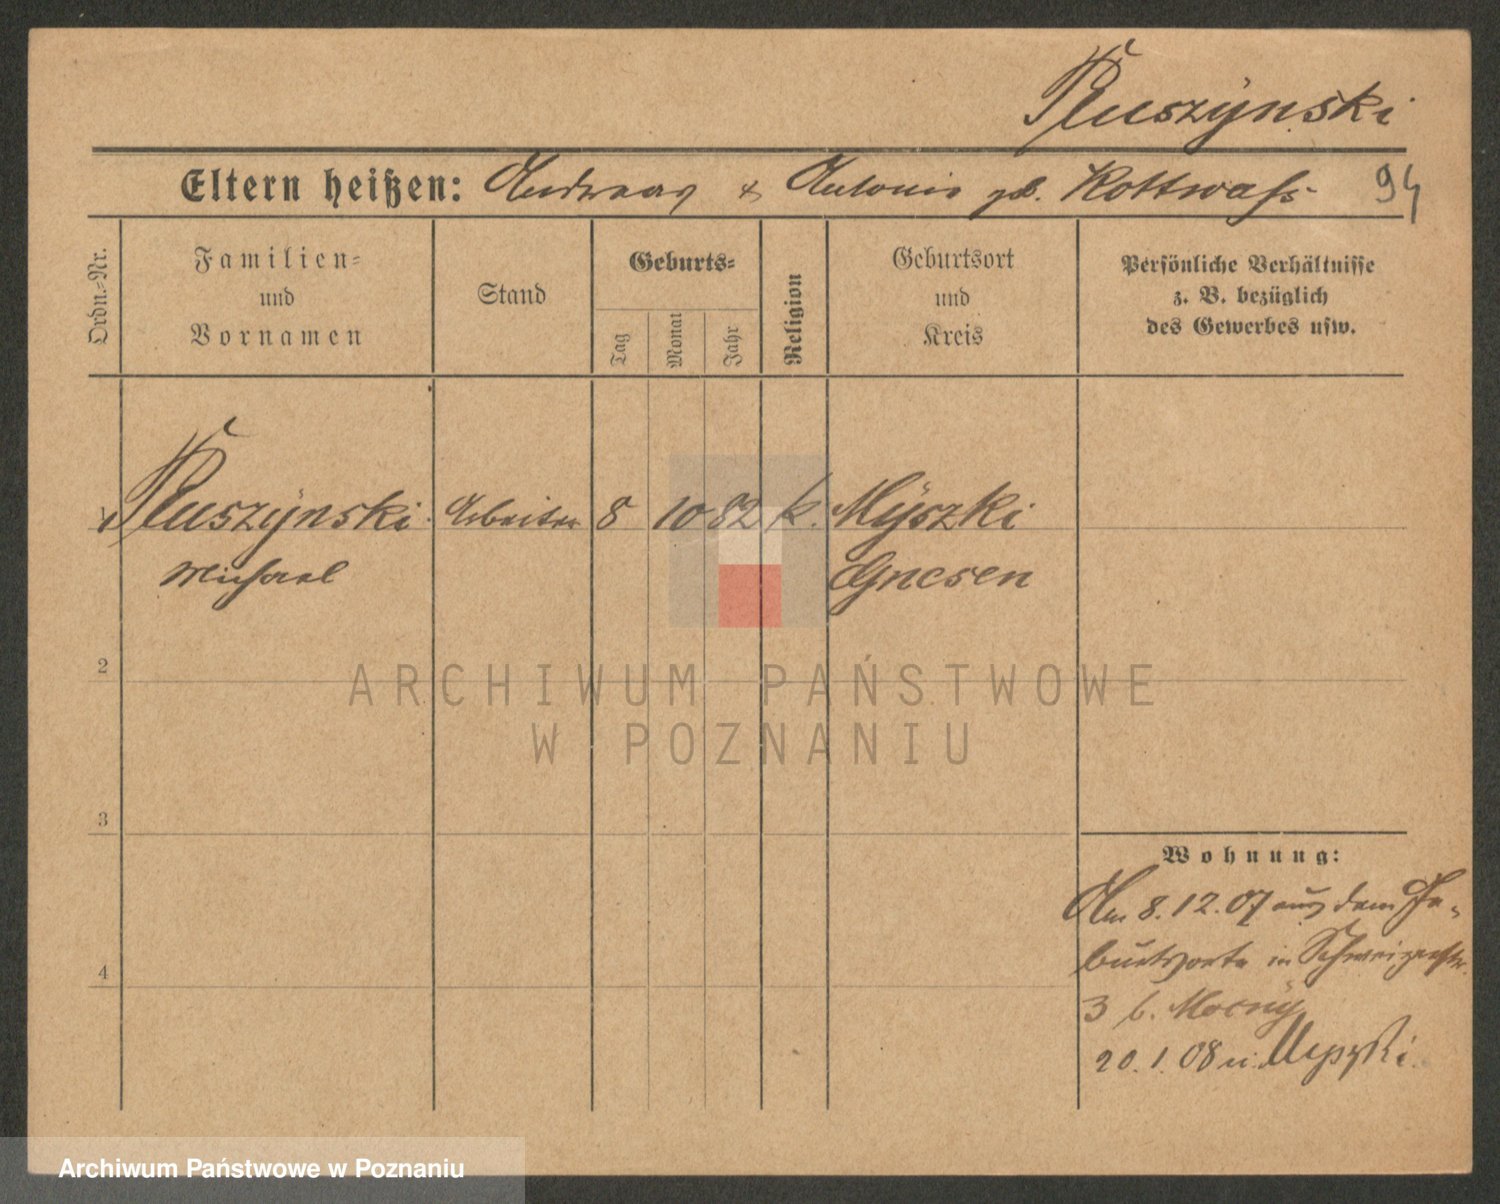 Pluszÿnski
Eltern heißen: Andreas & Antonie geb. Kottwass
94
Ordn.-Nr.
Familien- und Vornamen
Stand
Geburts-
Tag
Monat
Jahr
Religion
Geburtsort und Kreis
Persönliche Verhältnisse
z. B. bezüglich
des Gewerbes usw.
1 Pluszÿnski Arbeiter 8 10 82 k. Mÿszki
Michael Gnesen
2
3
4
Wohnung:
Am 8.12.07 aus dem Ge-
burtsorte in Schweizerstr.
3 b. Mocnÿ
20.1.08 n. Myszki.
ARCHIWUM PAŃSTWOWE
W POZNANIU
Archiwum Państwowe w Poznaniu